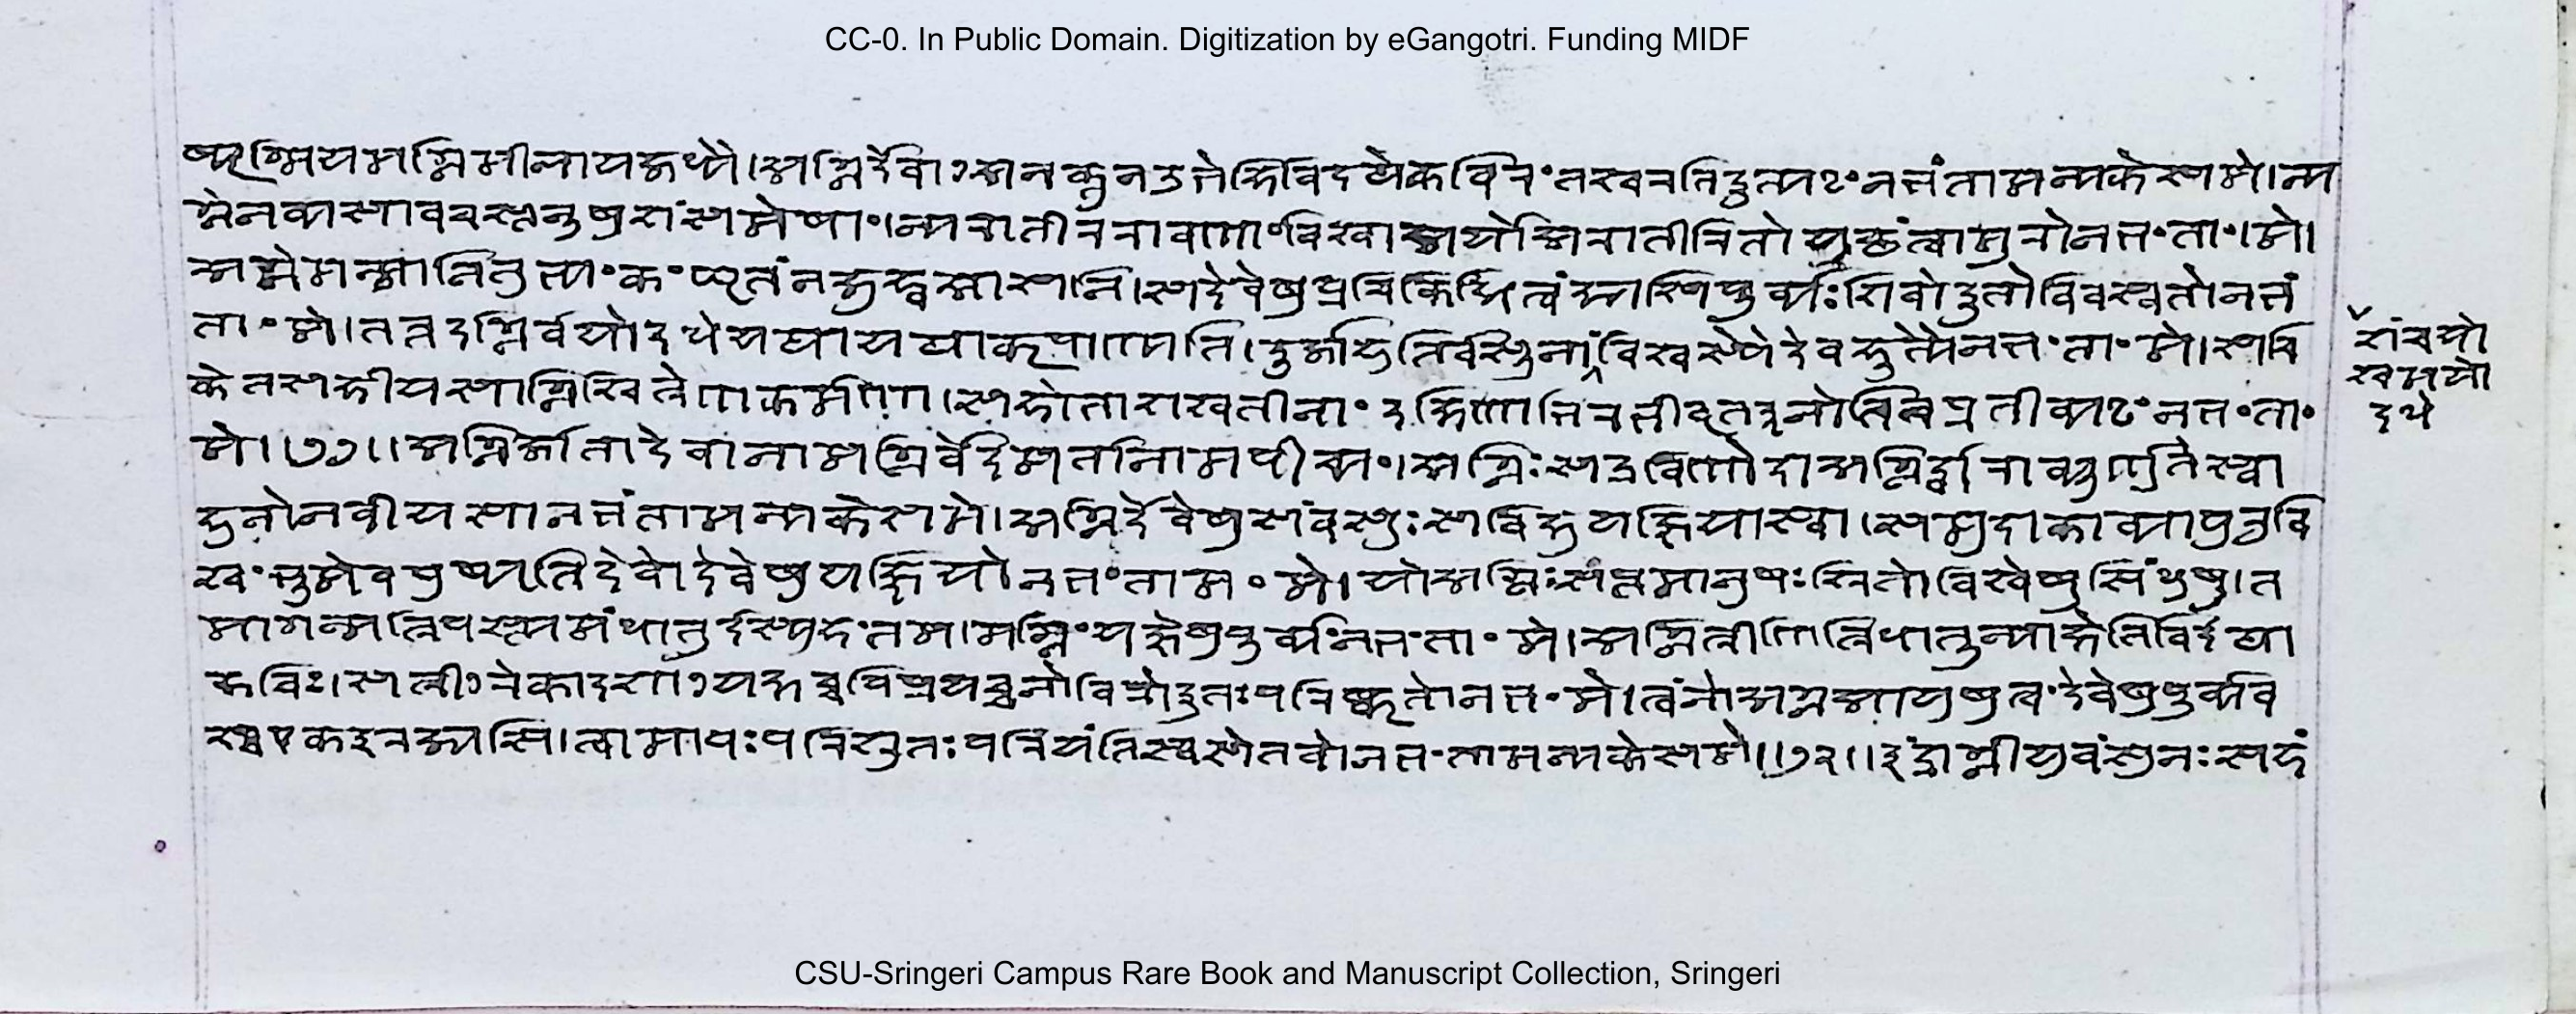 CC-0. In Public Domain. Digitization by eGangotri. Funding MIDF
ष्यृग्मियमग्निमीलायजध्यै।अग्निर्देवाꣳअनक्तुनउभेहिविदथेकविरं॰तश्चरतिदूत्यं॰नभंतामन्यकेसमे।न्य
ग्नेनव्यसावचस्तनूषुशंसमेषां॰।न्यरातीररावणां॰विश्वाअर्योअरातीरितोयुच्छंत्वामुरोनभं॰तां॰।मे।
अग्नेमन्मानितुभ्यं॰कं॰घृतंनजुह्वआसनि।सदेवेषुप्रचिकिद्धित्वंह्यसिपूर्व्यःशिवोदूतोविवस्वतोनभं
ता॰मे।तत्तदग्निर्वयोदधेयथायथाकृपण्यति।ऊर्जाहुतिर्वसूनांविश्वस्यैदेवहूत्यैनभं॰ता॰मे।सचि
शंचयो
श्चमयो
दधे
केतसहीयसाग्निश्चित्रेणकर्मणा।सहोताशश्वतीनां॰दक्षिणाभिरभीवृतइनोतिचप्रतीव्यं॰नभं॰ता॰
मे।।७१।।अग्निर्जातादेवानामग्निर्वेदमर्तानामपीच्यं॰।अग्निःसद्रविणोदाअग्निर्द्वाराव्यूर्णुतेस्वा
हुतोनवीयसानभंतामन्यकेसमे।अग्निर्देवेषुसंवसुःसविक्षुयज्ञियास्वा।समुदाकाव्यापुरुवि
श्वं॰भूमेवपुष्यतिदेवोदेवेषुयज्ञियोनभं॰ताम॰मे।योअग्निःसप्तमानुषःश्रितोविश्वेषुसिंधुषु।त
मागन्मत्रिपस्त्यंमंधातुर्दस्युहं॰तम।मग्निं॰यज्ञेषुपूर्व्यंनभं॰ता॰मे।अग्निस्त्रीणित्रिधातून्याक्षेतिविदथा
कविः।सत्रीꣳरेकादशाꣳयक्षच्चपिप्रयच्चनोविप्रोदूतःपरिष्कृतोनभं॰मे।त्वंनोअग्नआयुषुत्वं॰देवेषुपूर्व्यव
स्वएकइरज्यसि।त्वामापःपरिस्रुतःपरियंतिस्वसेतवोनभं॰तामन्यकेसमे।।७२।।इंद्राग्नीयुवंसुनःसहं
CSU-Sringeri Campus Rare Book and Manuscript Collection, Sringeri